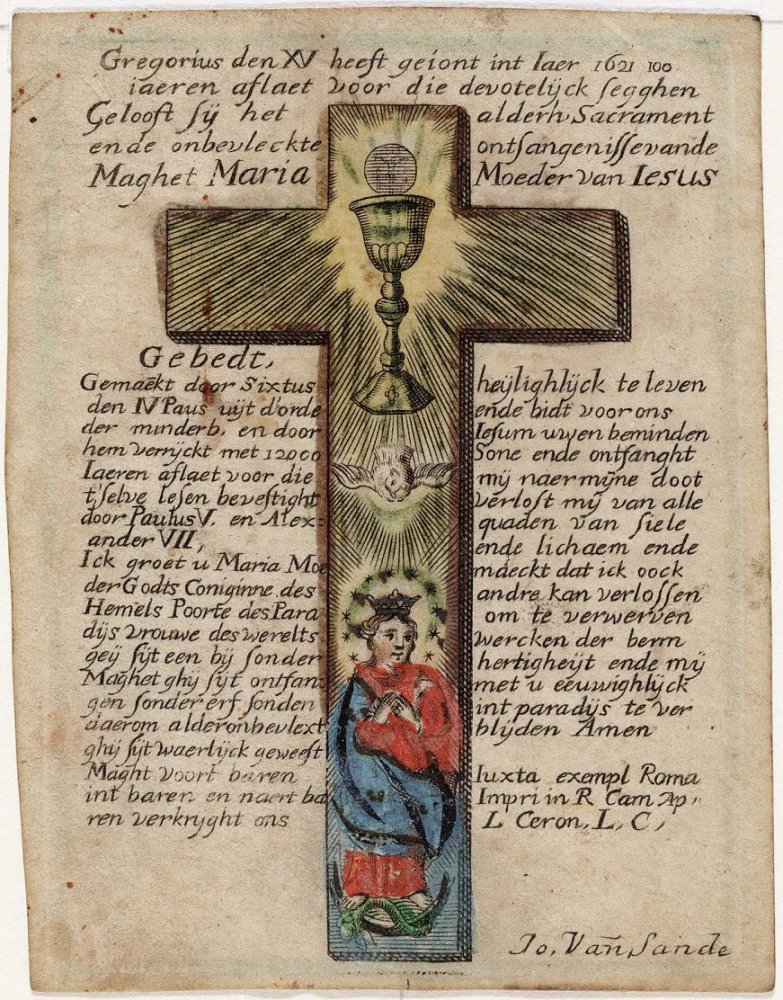 Gregorius den XV heeft geiont int Iaer 1621 100
iaeren aflaet voor die devotelijck segghen
Gelooft sÿ het alderh. Sacrament
ende onbevleckte ontfangenisse vande
Maghet Maria Moeder van Iesus
Gebedt,
Gemaēkt door Sixtus
den IV Paus uijt d'orde
der minderb. en door
hem verrijckt met 12000
Iaeren aflaet voor die
t'selve lesen bevestight
door Paulus V. en Alex:
ander VII,
Ick groet u Maria Moe
der Godts Coniginne des
Hemels Poorte des Para
dijs vrouwe des werelts
geÿ sijt een bij sonder
Maghet ghij sijt ontfan:
gen sonder erf sonden
daerom alderonbevlext
ghij sijt waerlijck geweest
Maght voort baren
int baren en naert ba
ren verkryght ons
heijlighlijck te leven
ende bidt voor ons
Iesum uwen beminden
Sone ende ontfanght
mij naer mijne doot
verlost mij van alle
quaden van siele
ende lichaem ende
maeckt dat ick oock
andre kan verlossen
om te verwerven
wercken der berm
hertigheijt ende mij
met u eeuwighlijck
int paradijs te ver
blijden Amen
Iuxta exempl Roma
Impri in R Cam Ap,
L Ceron, L, C,
Jo, Van Sande